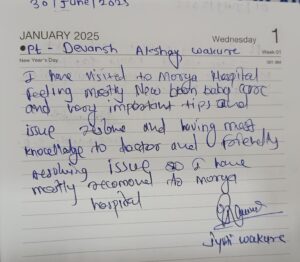 30/June/2025
JANUARY 2025
Wednesday 1
Pt - Devansh Akshay wakure
Week 01
New Year's Day
I have visited to Morya Hospital
feeling mostly New born baby care
and very important tips and
issue solve and having most
knowledge to doctor and friendly
resolving issue so I have
mostly recomond to morya
hospital
jyoti wakure